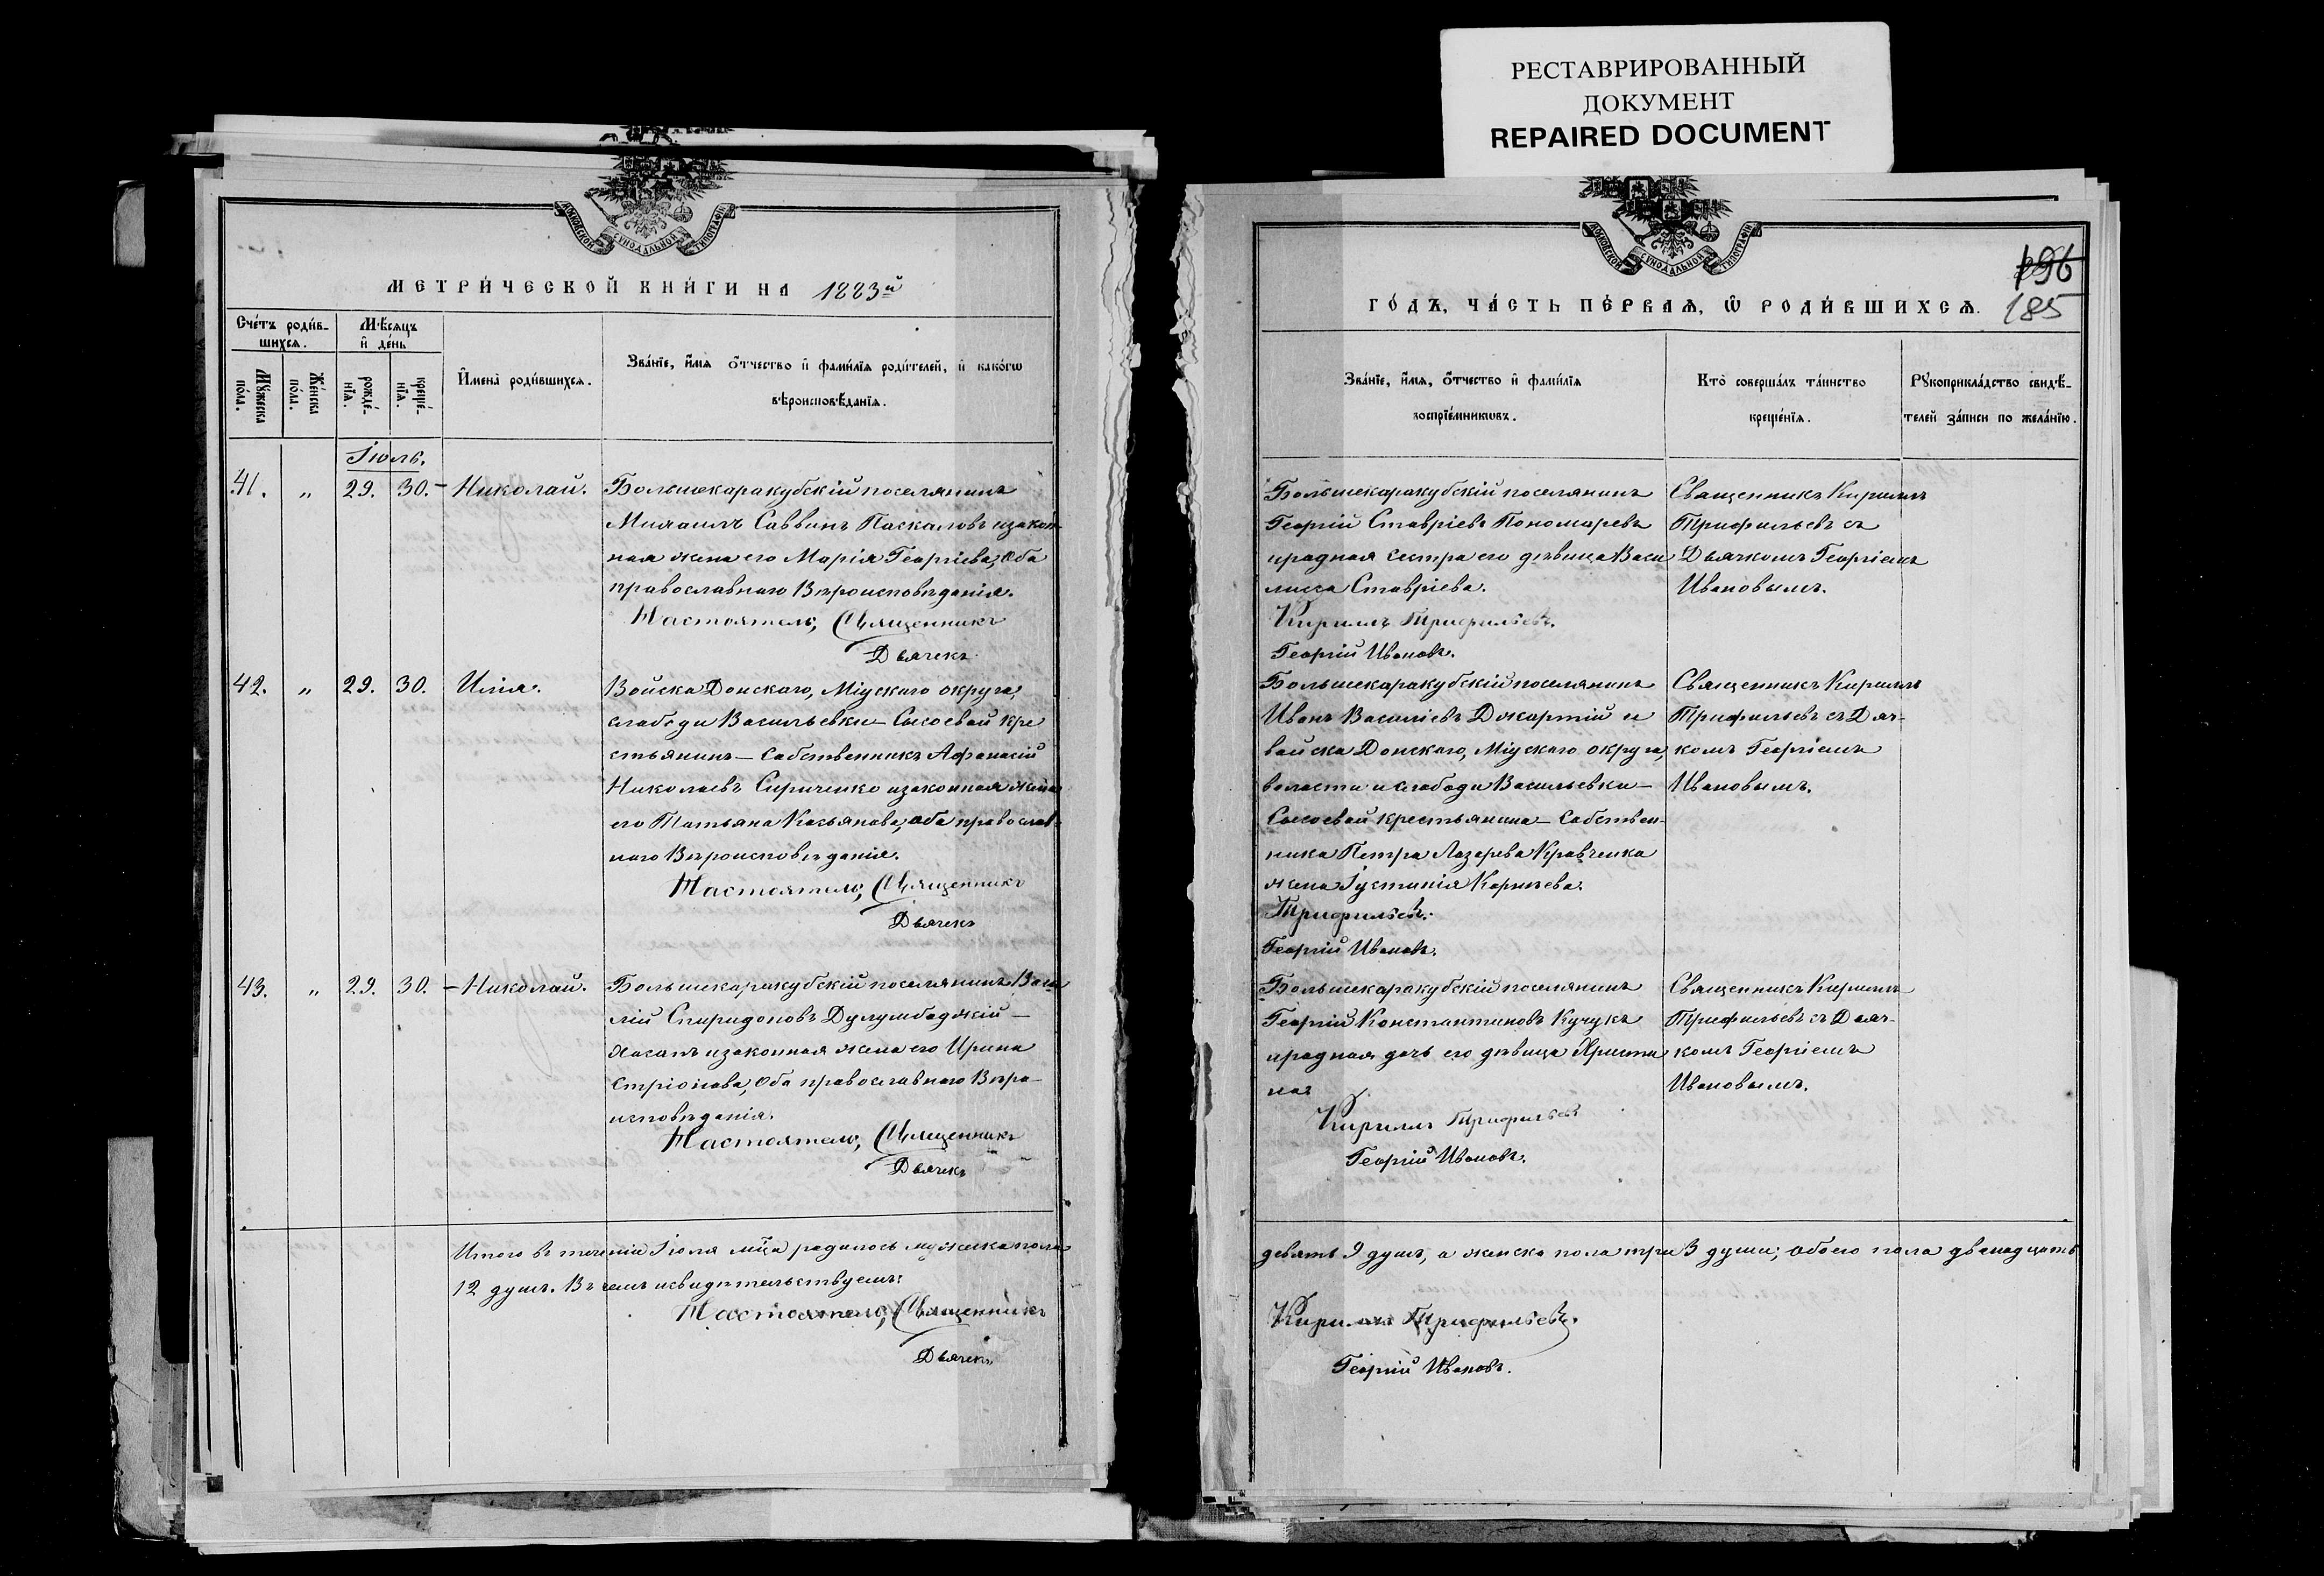 РЕСТАВРИРОВАННЫЙ
ДОКУМЕНТ
REPAIRED DOCUMENT
МОСКОВСКОЙ СѴНОДАЛЬНОЙ ТИПОГРАФІИ
МЕТРИ́ЧЕСКОЙ КНИ́ГИ НА 1883й
Сче́тъ роди́в-
шихся.
Мѣ́сяцъ
и҆ де́нь
Мꙋ́жеска
по́ла.
Же́нска
по́ла.
рожде́-
нїя.
креще́-
нїя.
И҆мена̀ роди́вшихся.
Зва́нїе, и҆́мя ѻ҆́тчество и҆ фами́лїя роди́телей, и҆ како́гѡ
вѣроисповѣ́данїя.
Іюль.
41. „ 29. 30. - Николай.
Большекаракубскій поселянинъ
Михаилъ Саввинъ Паскаловъ и закон-
ная жена его Марія Георгіева, Оба
православнаго Вѣроисповѣданія.
Настоятель, Священникъ
Дьячекъ
42. „ 29. 30. Илія.
Войска Донскаго, Міускаго округа,
слободы Васильевки - Сысоевой кре
стьянинъ - Собственникъ Афанасій
Николаевъ Сириченко и законная жена
его Татьяна Касьянова, оба православ-
наго Вѣроисповѣданія.
Настоятель, Священникъ
Дьячекъ
43. „ 29. 30. - Николай.
Большекаракубскій поселянинъ Васи
лій Спиридоновъ Дулумбаджій -
Хасапъ и законная жена его Ирина
Оба православнаго Вѣро-
исповѣданія.
Настоятель, Священникъ
Дьячекъ
Итого въ теченіи Іюля мца родилось мужеска пола
12 душъ. Въ чемъ и свидѣтельствуемъ:
Настоятель, Священникъ
Дьячекъ
МОСКОВСКОЙ СѴНОДАЛЬНОЙ ТИПОГРАФІИ
196
185
ГО́ДЪ, ЧА́СТЬ ПЕ́РВАЯ, Ѡ҆ РОДИ́ВШИХСЯ.
Зва́нїе, и҆́мя, ѻ҆́тчество и҆ фами́лїя
воспрїе́мникѡвъ.
Кто̀ соверша́лъ та́инство
креще́нїя.
Рꙋкоприкла́дство свидѣ́-
телей за́писи по жела́нїю.
Большекаракубскій поселянинъ
Георгій Ставріевъ Пономаревъ
и родная сестра его дѣвица Васи
лисса Ставріева.
Кириллъ Трифильевъ.
Георгій Ивановъ.
Священникъ Кириллъ
Трифильевъ съ
Дьячкомъ Георгіемъ
Ивановымъ.
Большекаракубскій поселянинъ
Иванъ Василіевъ Джартій и
войска Донскаго, Міускаго округа,
волости и слободы Васильевки -
Сысоевой крестьянина - Собствен-
ника Петра Лазарева Кравченка
жена Іустинія Карпѣева.
Трифильевъ.
Георгій Ивановъ.
Священникъ Кириллъ
Трифильевъ съ Дьяч-
комъ Георгіемъ
Ивановымъ.
Большекаракубскій поселянинъ
Георгій Константиновъ Кучукъ
и родная дочь его дѣвица Христи
на.
Кириллъ Трифильевъ
Георгій Ивановъ.
Священникъ Кириллъ
Трифильевъ съ Дьяч-
комъ Георгіемъ
Ивановымъ.
девять 9 душъ, а женска пола три 3 души; обоего пола двѣнадцать
Кириллъ Трифильевъ.
Георгій Ивановъ.